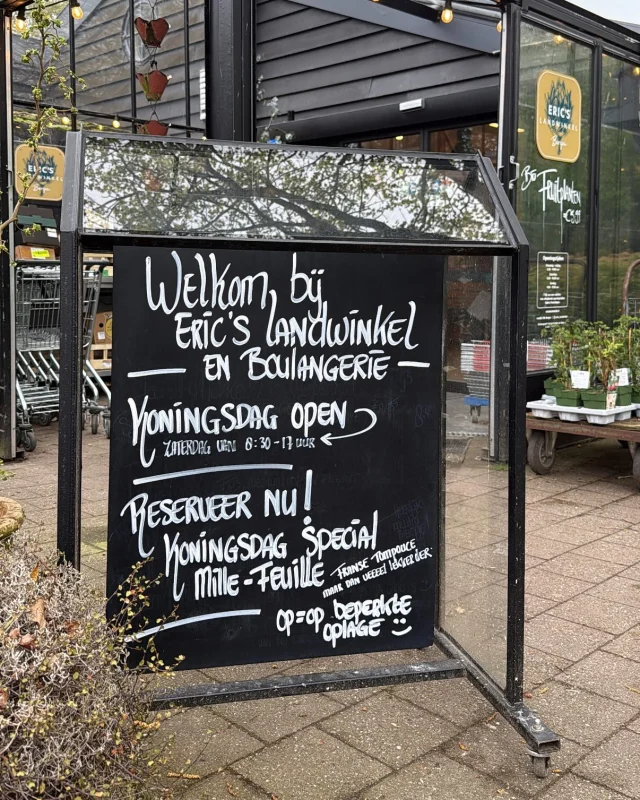 ERIC'S
LANDWINKEL
ERIC'S
LANDWINKEL
Bio
Fruitplanten
Openingstijden
Welkom bij
ERIC'S LANDWINKEL
EN BOULANGERIE
KONINGSDAG OPEN
ZATERDAG VAN 8:30-17 UUR
RESERVEER NU!
KONINGSDAG SPECIAL
MILLE-FEUILLE
FRANSE TOMPOUCE
MAAR DAN VEEEL LEKKERDER.
OP=OP BEPERKTE
OPLAGE